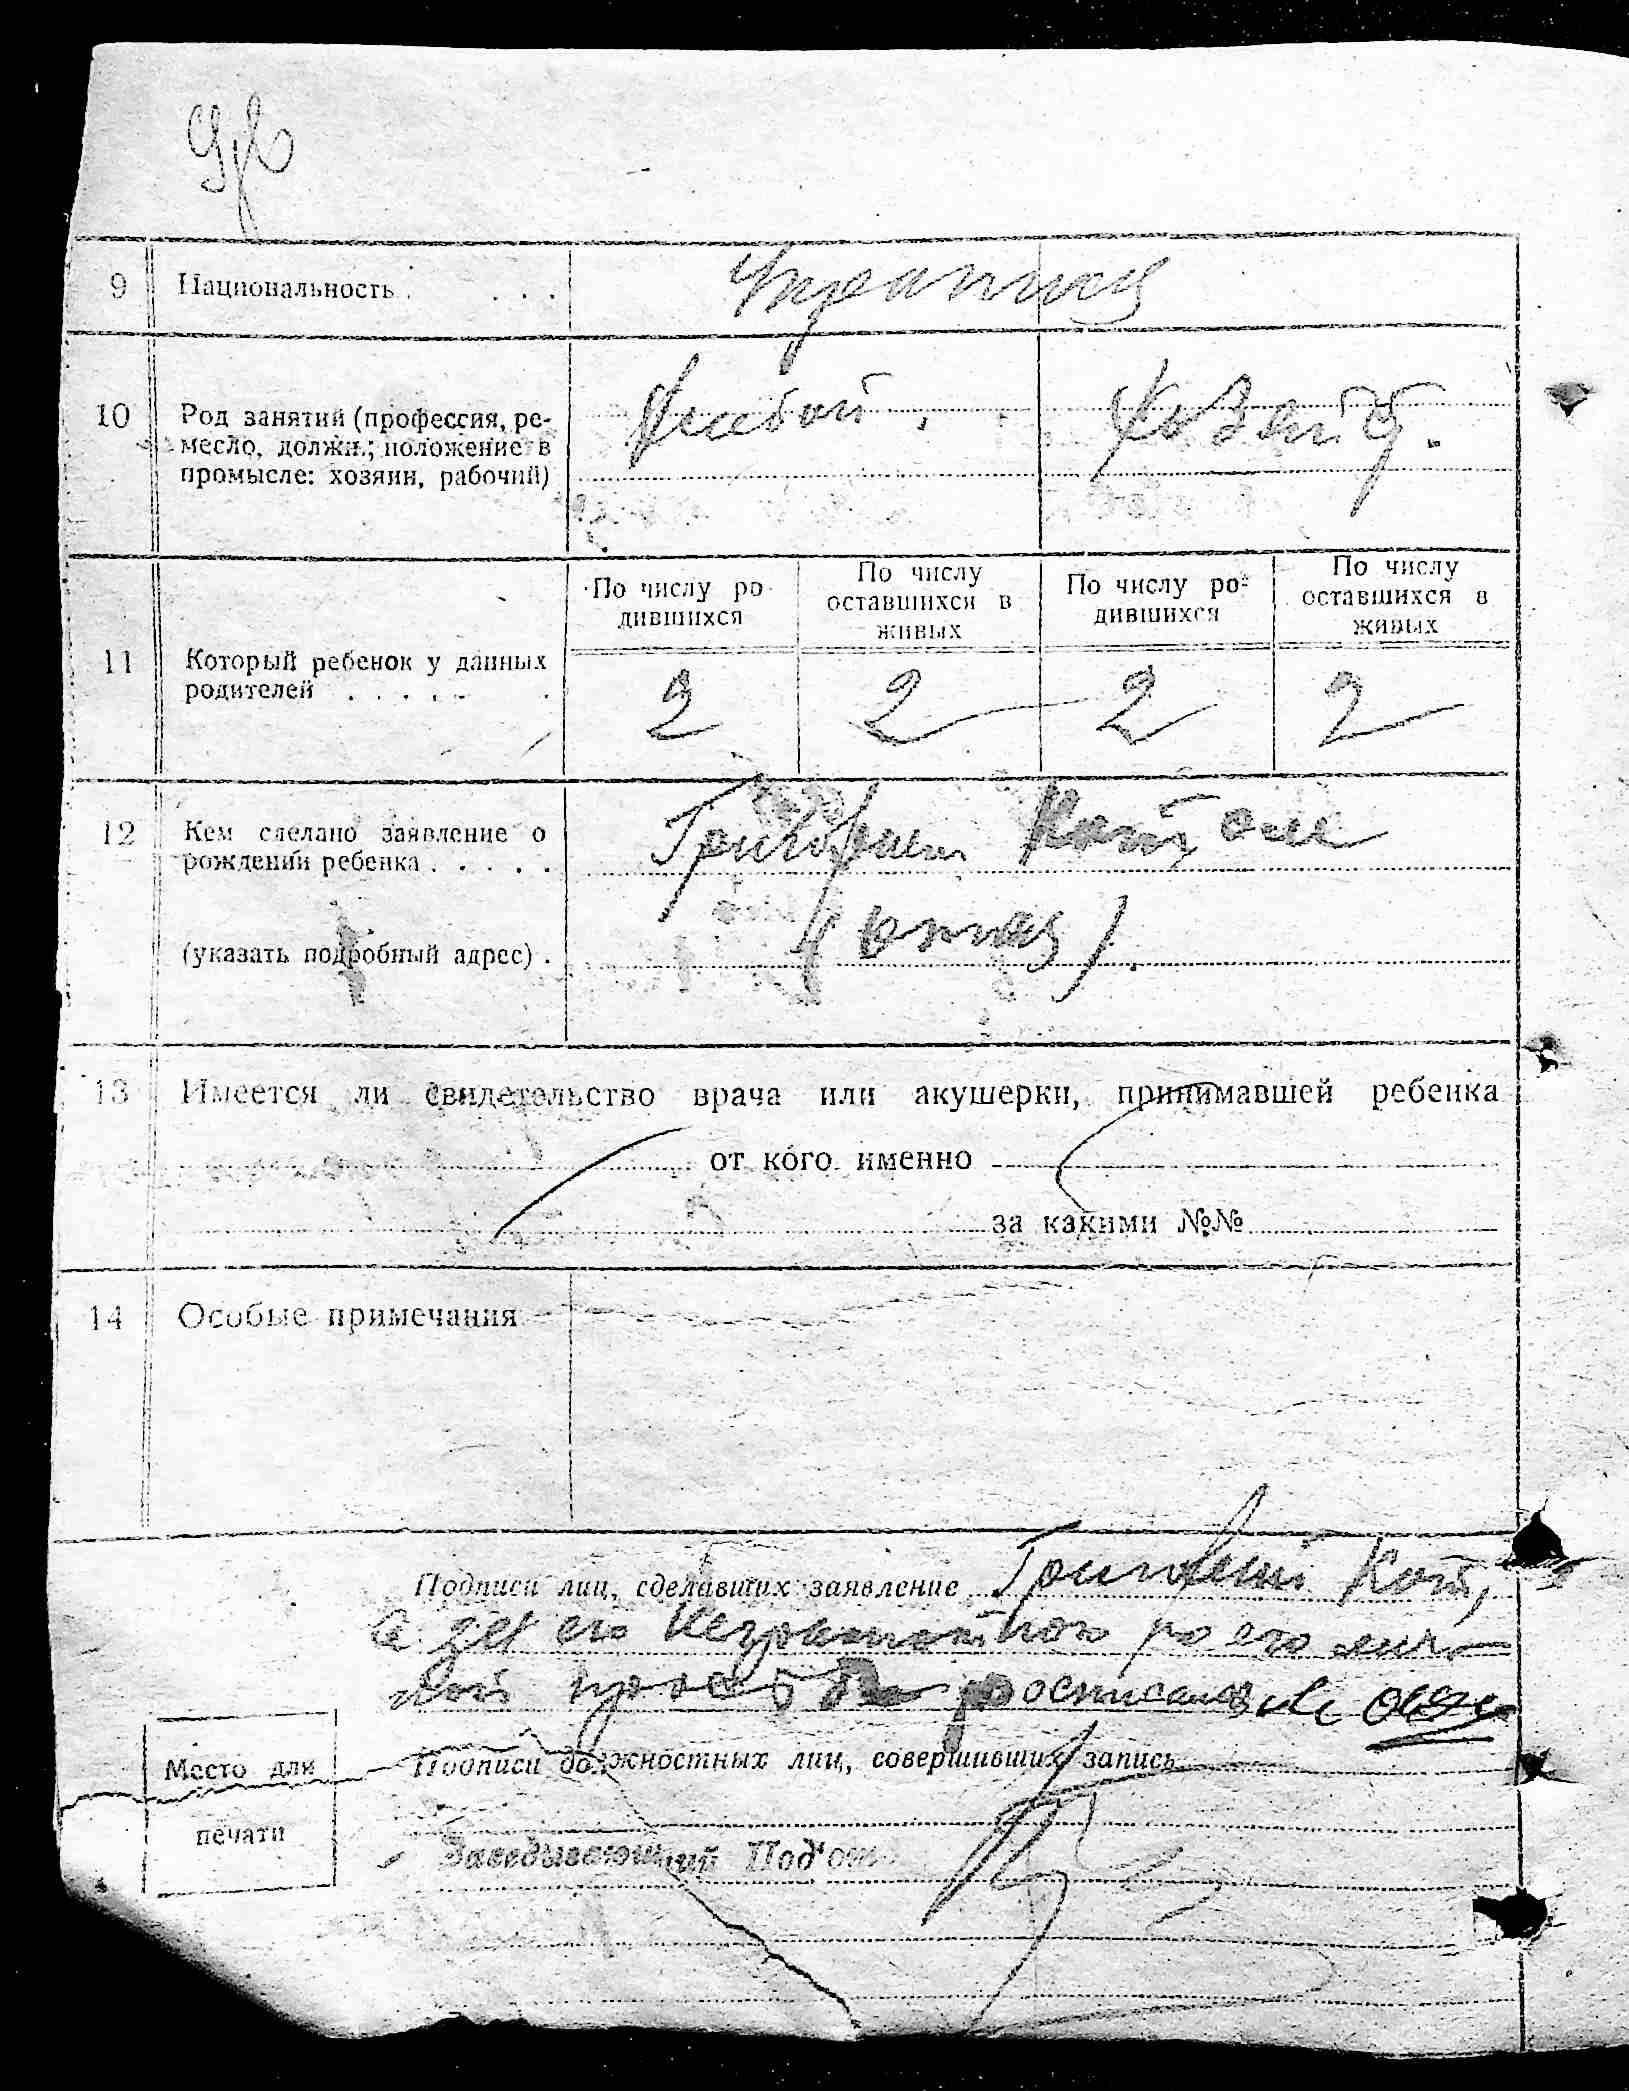 9 Национальность . . . .
10 Род занятий (профессия, ре-
месло, должн.; положение в
промысле: хозяин, рабочий)
По числу ро-
дившихся
По числу
оставшихся в
живых
По числу ро-
дившихся
По числу
оставшихся в
живых
11 Который ребенок у данных
родителей . . . . . .
2 2 2 2
12 Кем сделано заявление о
рождении ребенка . . . . .
Григорием
(указать подробный адрес) .
13 Имеется ли свидетельство врача или акушерки, принимавшей ребенка
от кого именно
за какими №№
14 Особые примечания
Подписи лиц, сделавших заявление Григорий
а за его неграмотного по его лич-
ной просьбе росписался
Место для
печати
Подписи должностных лиц, совершивших запись
Заведывающий Под'отд